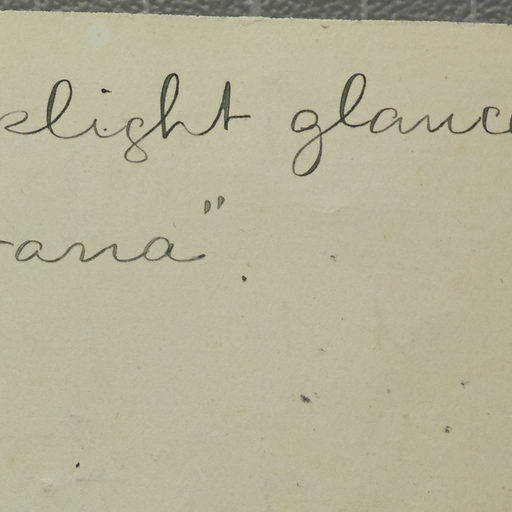 slight glance
ana".